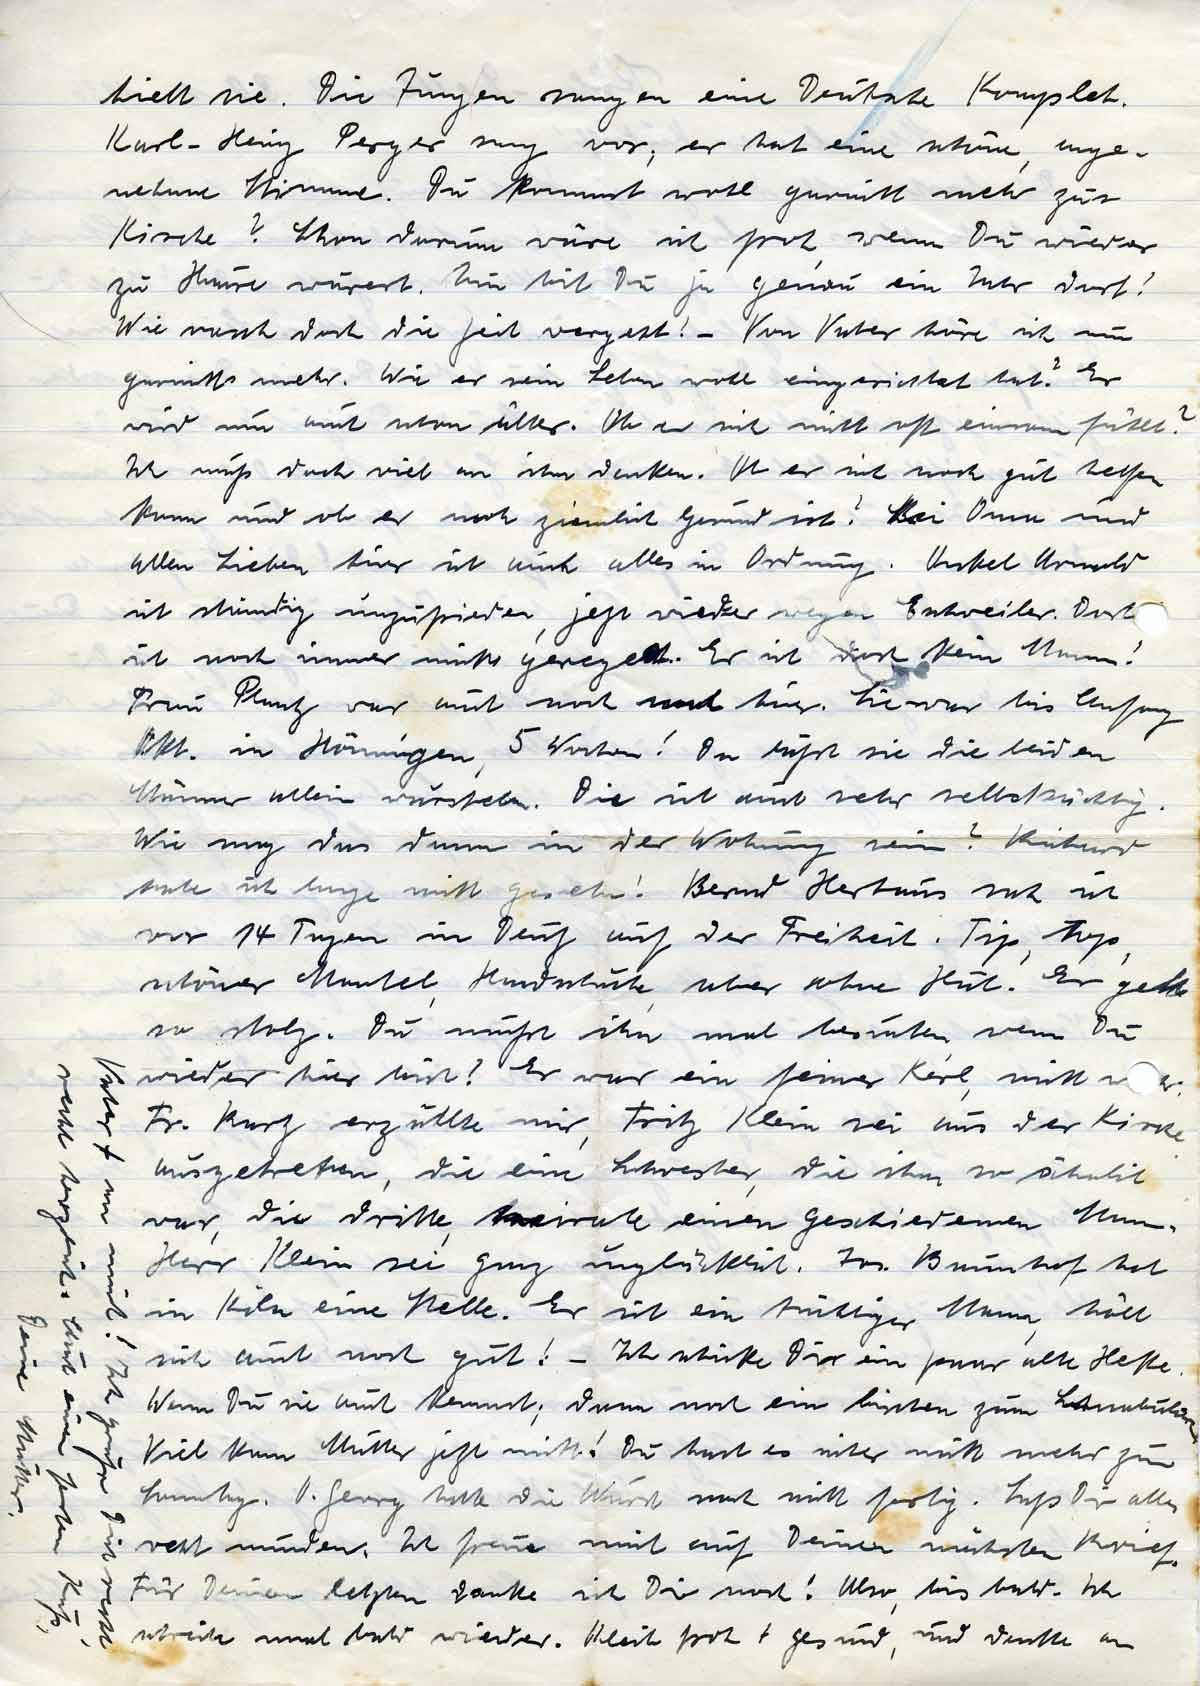 hielt sie. Die Jungen sangen eine Deutsche Komplet.
Karl-Heinz Perger sang vor, er hat eine schöne, ange-
nehme Stimme. Du kommst wohl garnicht mehr zur
Kirche? Schon darum wäre ich froh, wenn Du wieder
zu Hause wärest. Nun bist Du ja genau ein Jahr dort!
Wie rasch doch die Zeit vergeht! – Von Vater höre ich nun
garnichts mehr. Wie er sein Leben wohl eingerichtet hat? Er
wird nun auch schon älter. Ob er sich nicht oft einsam fühlt?
Ich muß doch viel an ihn denken. Ob er sich noch gut helfen
kann und ob er noch ziemlich gesund ist? Bei Oma und
allen Lieben hier ist auch alles in Ordnung. Onkel Arnold
ist ständig unzufrieden, jetzt wieder wegen Eschweiler. Dort
ist noch immer nichts geregelt. Er ist doch kein Mann!
Frau Plantz war auch noch hier. Sie war bis Anfang
Okt. in Hönningen, 5 Wochen! Da läßt sie die beiden
Männer allein wursteln. Die ist auch sehr selbstsüchtig.
Wie mag das dann in der Wohnung sein? Richard
habe ich lange nicht gesehen! Bernd Herhaus sah ich
vor 14 Tagen in Deutz auf der Freiheit. Tip, top,
schöner Mantel, Handschuhe, aber ohne Hut. Er geht
so stolz. Du mußt ihn mal besuchen, wenn Du
wieder hier bist! Er war ein feiner Kerl, nicht wahr.
Fr. Kurtz erzählte mir, Fritz Klein sei aus der Kirche
ausgetreten, die eine Schwester, die ihm so ähnlich
war, die dritte, heirate einen geschiedenen Mann.
Herr Klein sei ganz unglücklich. Jos. Baumhof hat
in Köln eine Stelle. Er ist ein tüchtiger Mann, hält
sich auch noch gut! – Ich schicke Dir ein paar alte Hefte.
Wenn Du sie auch kennst, dann noch ein bischen zum Schnabulieren
Viel kann Mutter jetzt nicht! Du hast es sicher nicht mehr zum
Sonntag. O. Georg hatte die Wurst noch nicht fertig. Laß Dir alles
recht munden. Ich freue mich auf Deinen nächsten Brief.
Für Deinen letzten danke ich Dir noch! Also, bis bald. Ich
schreibe mal bald wieder. Bleib froh + gesund, und denke an
Vater + an mich! Ich grüße Dich recht,
recht herzlich. Und einen frohen Kuß,
Deine Mutter.